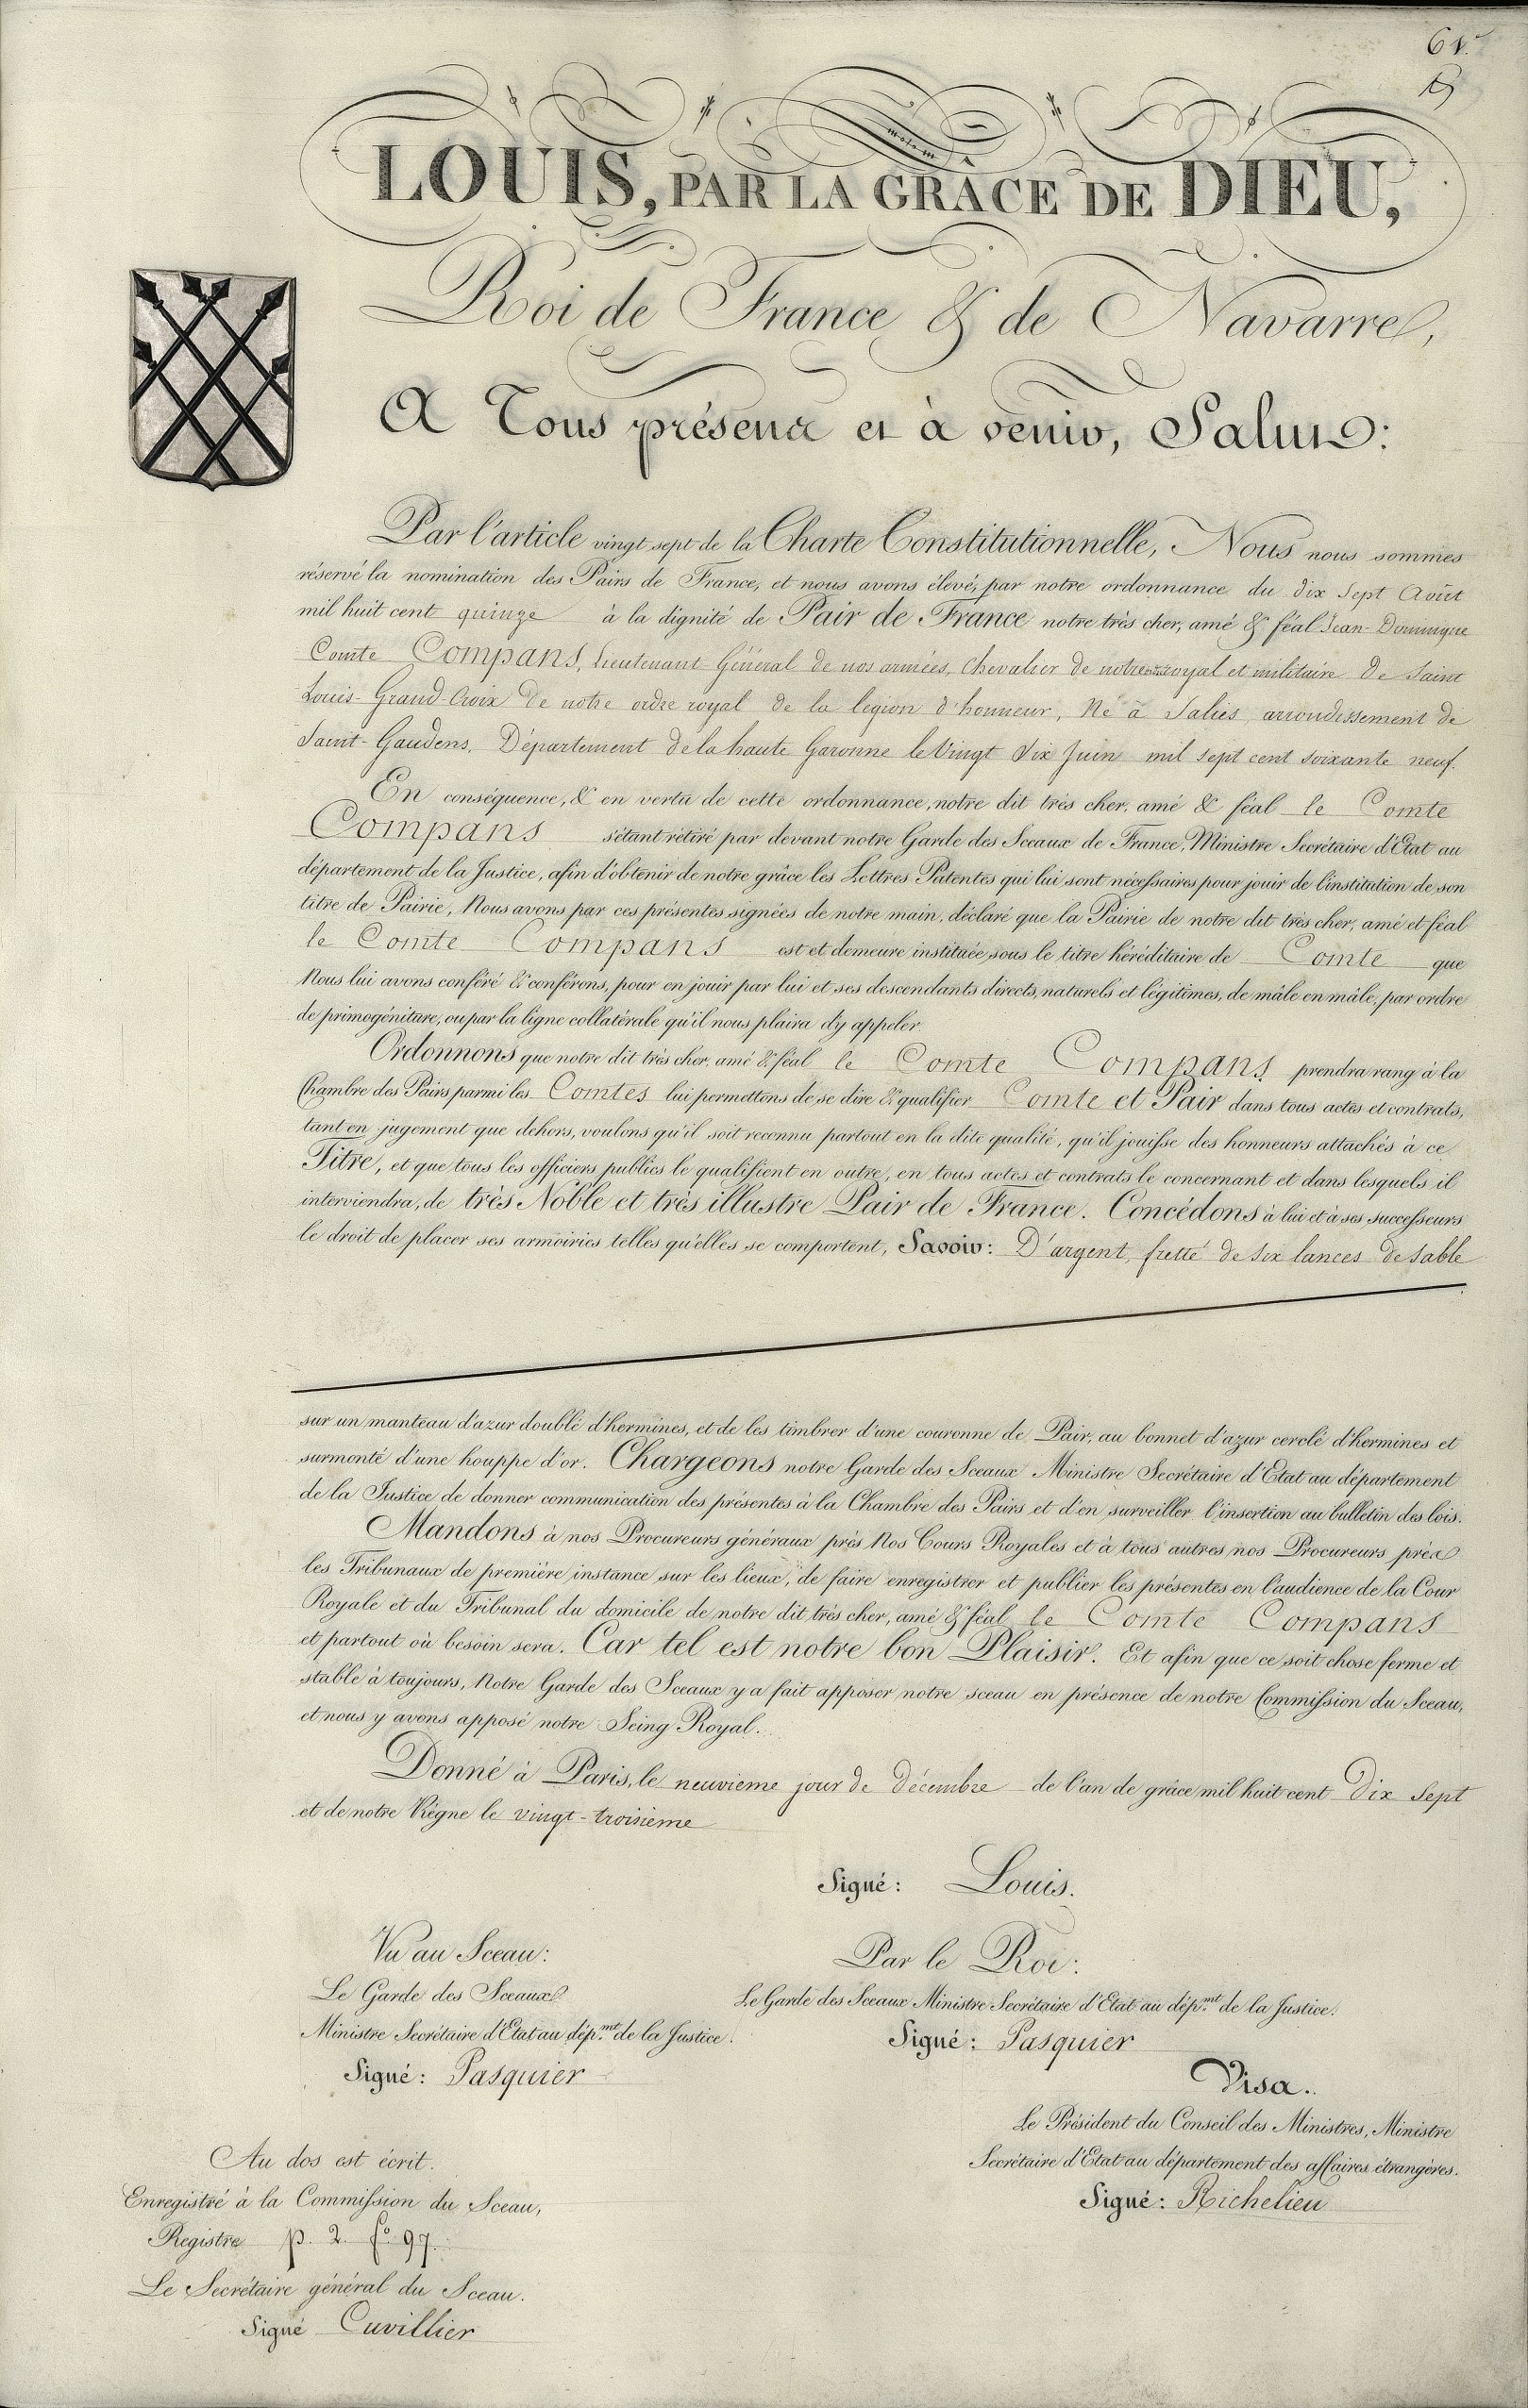 61.
LOUIS, PAR LA GRÂCE DE DIEU,
Roi de France & de Navarre,
A Tous présens et à venir, Salut:
Par l'article vingt sept de la Charte Constitutionnelle, Nous nous sommes
réservé la nomination des Pairs de France, et nous avons élevé, par notre ordonnance du dix sept Août
mil huit cent quinze à la dignité de Pair de France notre très cher, amé & féal Jean-Dominique
Comte Compans, Lieutenant-Général de nos armées, Chevalier de notre royal et militaire de Saint
Louis-Grand-Croix de notre ordre royal de la légion d'honneur, Né à Salies, arrondissement de
Saint-Gaudens, Département de la haute Garonne le Vingt Six Juin mil sept cent soixante neuf.
En conséquence, & en vertu de cette ordonnance, notre dit très cher, amé & féal le Comte
Compans s'étant rétiré par devant notre Garde des Sceaux de France, Ministre Secrétaire d'Etat au
département de la Justice, afin d'obtenir de notre grâce les Lettres Patentes qui lui sont nécessaires pour jouir de l'institution de son
titre de Pairie, Nous avons par ces présentes signées de notre main, déclaré que la Pairie de notre dit très cher, amé et féal
le Comte Compans est et demeure instituée sous le titre héréditaire de Comte que
Nous lui avons conféré & conférons, pour en jouir par lui et ses descendants directs, naturels et légitimes, de mâle en mâle, par ordre
de primogéniture, ou par la ligne collatérale qu'il nous plaira d'y appeler.
Ordonnons que notre dit très cher, amé & féal le Comte Compans prendra rang à la
Chambre des Pairs parmi les Comtes lui permettons de se dire & qualifier Comte et Pair dans tous actes et contrats,
tant en jugement que dehors, voulons qu'il soit reconnu partout en la dite qualité, qu'il jouisse des honneurs attachés à ce
Titre, et que tous les officiers publics le qualifient en outre, en tous actes et contrats le concernant et dans lesquels il
interviendra, de très Noble et très illustre Pair de France. Concédons à lui et à ses successeurs
le droit de placer ses armoiries telles qu'elles se comportent, Savoir: D'argent, fretté de six lances de sable
sur un manteau d'azur doublé d'hermines, et de les timbrer d'une couronne de Pair, au bonnet d'azur cerclé d'hermines et
surmonté d'une houppe d'or. Chargeons notre Garde des Sceaux Ministre Secrétaire d'Etat au département
de la Justice de donner communication des présentes à la Chambre des Pairs et d'en surveiller l'insertion au bulletin des lois.
Mandons à nos Procureurs généraux près Nos Cours Royales et à tous autres nos Procureurs près
les Tribunaux de première instance sur les lieux, de faire enregistrer et publier les présentes en l'audience de la Cour
Royale et du Tribunal du domicile de notre dit très cher, amé & féal le Comte Compans
et partout où besoin sera. Car tel est notre bon Plaisir. Et afin que ce soit chose ferme et
stable à toujours, Notre Garde des Sceaux y a fait apposer notre sceau en présence de notre Commission du Sceau,
et nous y avons apposé notre Seing Royal.
Donné à Paris, le neuvième jour de décembre de l'an de grâce mil huit cent Dix Sept
et de notre Règne le vingt-troisième
Signé: Louis.
Vu au Sceau:
Le Garde des Sceaux
Ministre Secrétaire d'Etat au dép.mt de la Justice.
Signé: Pasquier
Par le Roi:
Le Garde des Sceaux Ministre Secrétaire d'Etat au dép.mt de la Justice.
Signé: Pasquier
Visa.
Le Président du Conseil des Ministres, Ministre
Secrétaire d'Etat au département des affaires étrangères.
Signé: Richelieu
Au dos est écrit.
Enregistré à la Commission du Sceau,
Registre p. 2. fo 97.
Le Secrétaire général du Sceau.
Signé Cuvillier